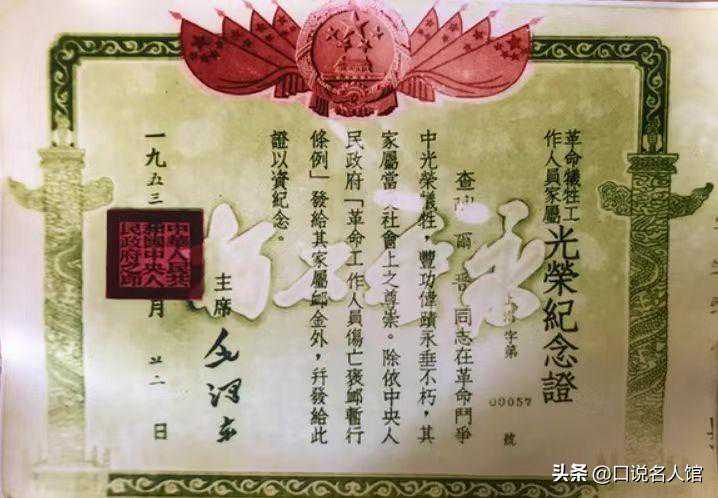 革命犧牲工
作人員家屬
光榮紀念證
字第 00057 號
查陳爾晋同志在革命鬥爭
中光榮犧牲，豐功偉蹟永垂不朽，其
家屬當受社會上之尊崇。除依中央人
民政府「革命工作人員傷亡褒卹暫行
條例」發給其家屬卹金外，幷發給此
證以資紀念。
永垂不朽
主席 毛澤东
一九五三 月 廿二日
中華人民共
和國中央人
民政府之印
头条 @口说名人馆